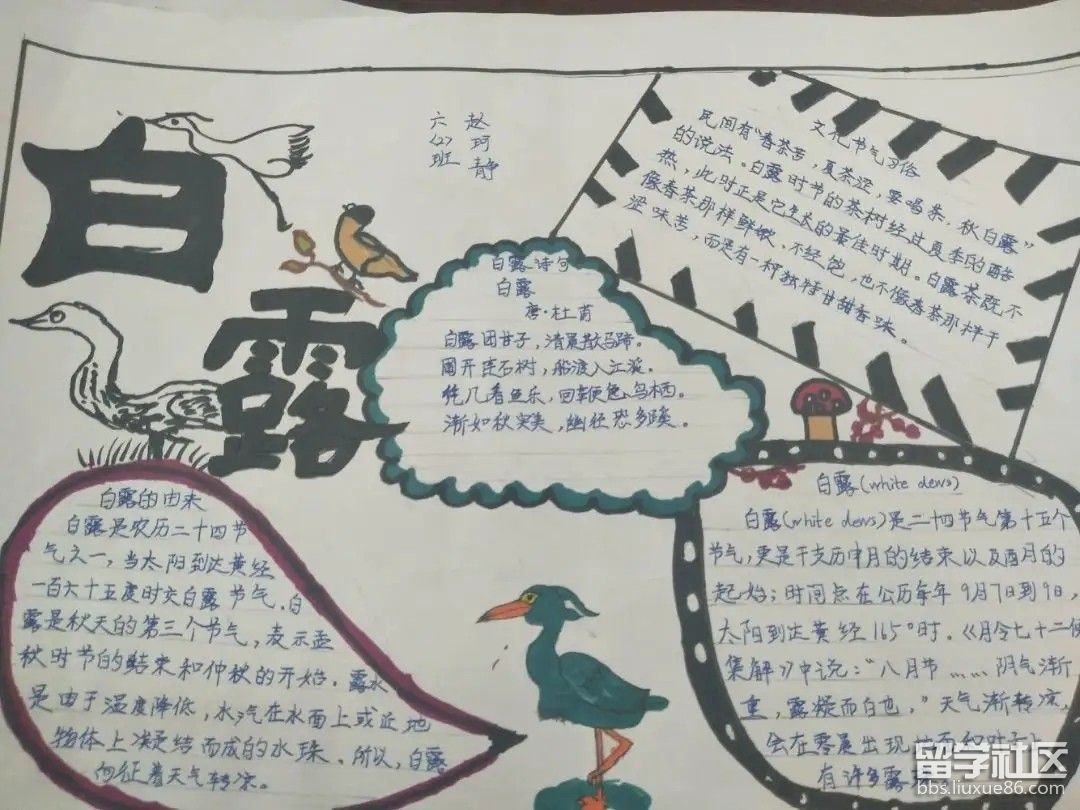 白露
六(2)班
赵珂静
文化节气习俗
民间有“春茶苦，夏茶涩，要喝茶，秋白露”
的说法。白露时节的茶树经过夏季的酷
热，此时正是它生长的最佳时期。白露茶既不
像春茶那样鲜嫩、不经泡，也不像春茶那样干
涩味苦，而是有一种独特甘甜香味。
白露诗句
白露
唐·杜甫
白露团甘子，清晨散马蹄。
圃开连石树，船渡入江溪。
凭几看鱼乐，回鞭急鸟栖。
渐知秋实美，幽径恐多蹊。
白露的由来
白露是农历二十四节
气之一，当太阳到达黄经
一百六十五度时交白露节气。白
露是秋天的第三个节气，表示孟
秋时节的结束和仲秋的开始。露水
是由于温度降低，水汽在水面上或近地
物体上凝结而成的水珠。所以，白露
象征着天气转凉。
白露(white dews)
白露(white dews)是二十四节气第十五个
节气，更是干支历申月的结束以及酉月的
起始；时间点在公历每年9月7日到9日，
太阳到达黄经165°时。《月令七十二候
集解》中说：“八月节……阴气渐
重，露凝而白也。”天气渐转凉，
会在零晨出现地面和叶子上
有许多露
留学社区
bbs.liuxue86.com